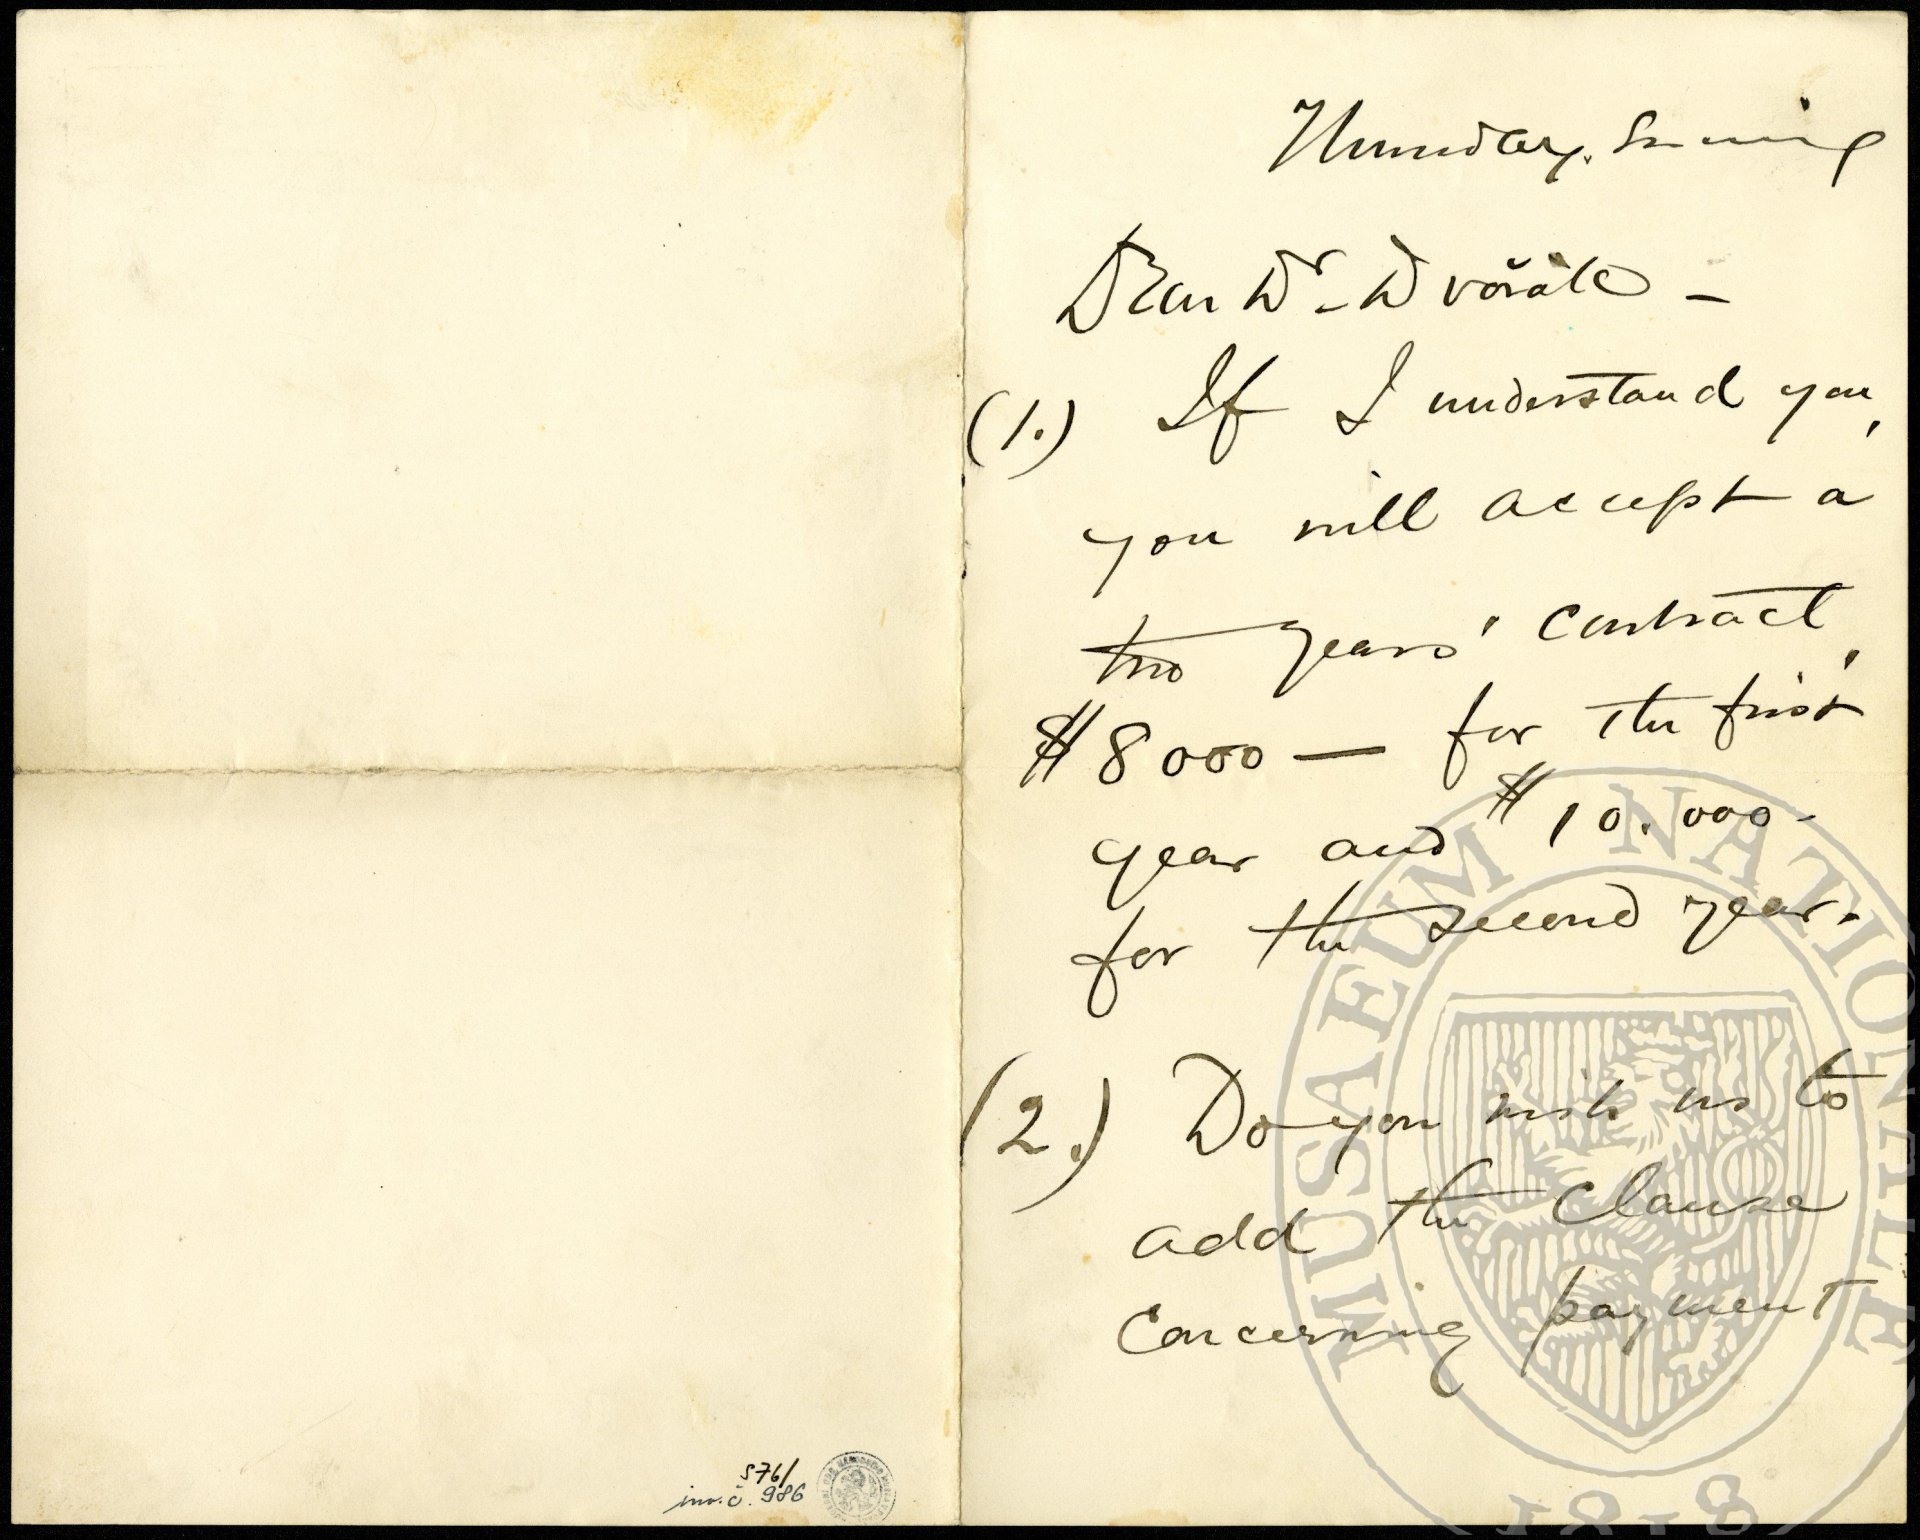 Thursday. Evening
Dear Dr. Dvořák –
(1.) If I understand you,
you will accept a
two years' contract,
$8000 — for the first
year and $10.000 -
for the second year.
(2.) Do you wish us to
add the clause
concerning payment
S 76/
inv. č. 986
MUSAEUM NATIONALE
1818